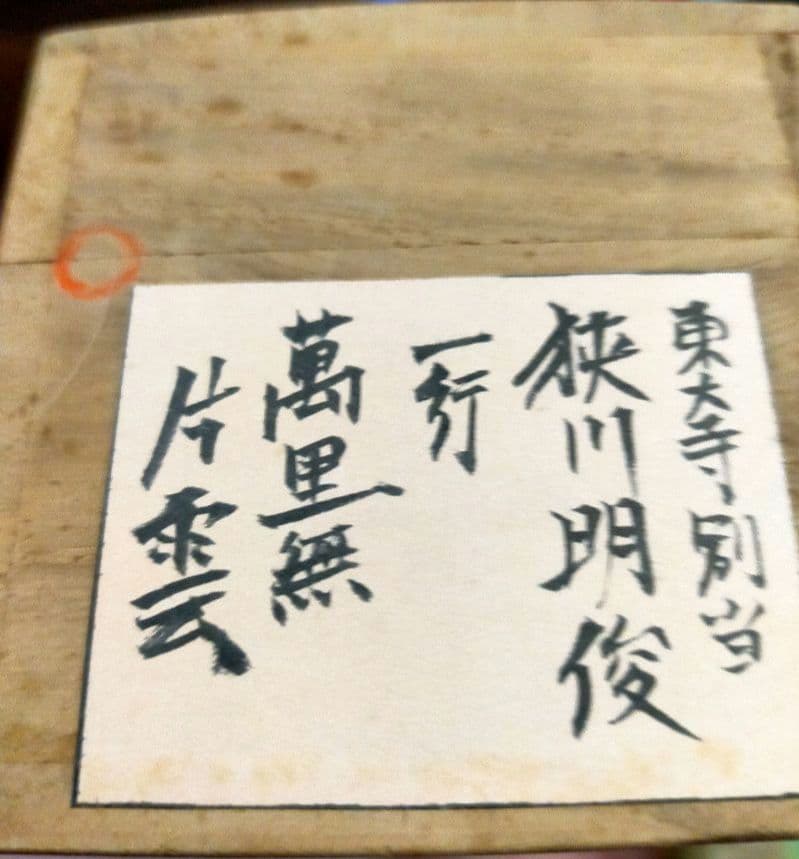 東大寺別当
狹川明俊
一行
萬里無
片雲